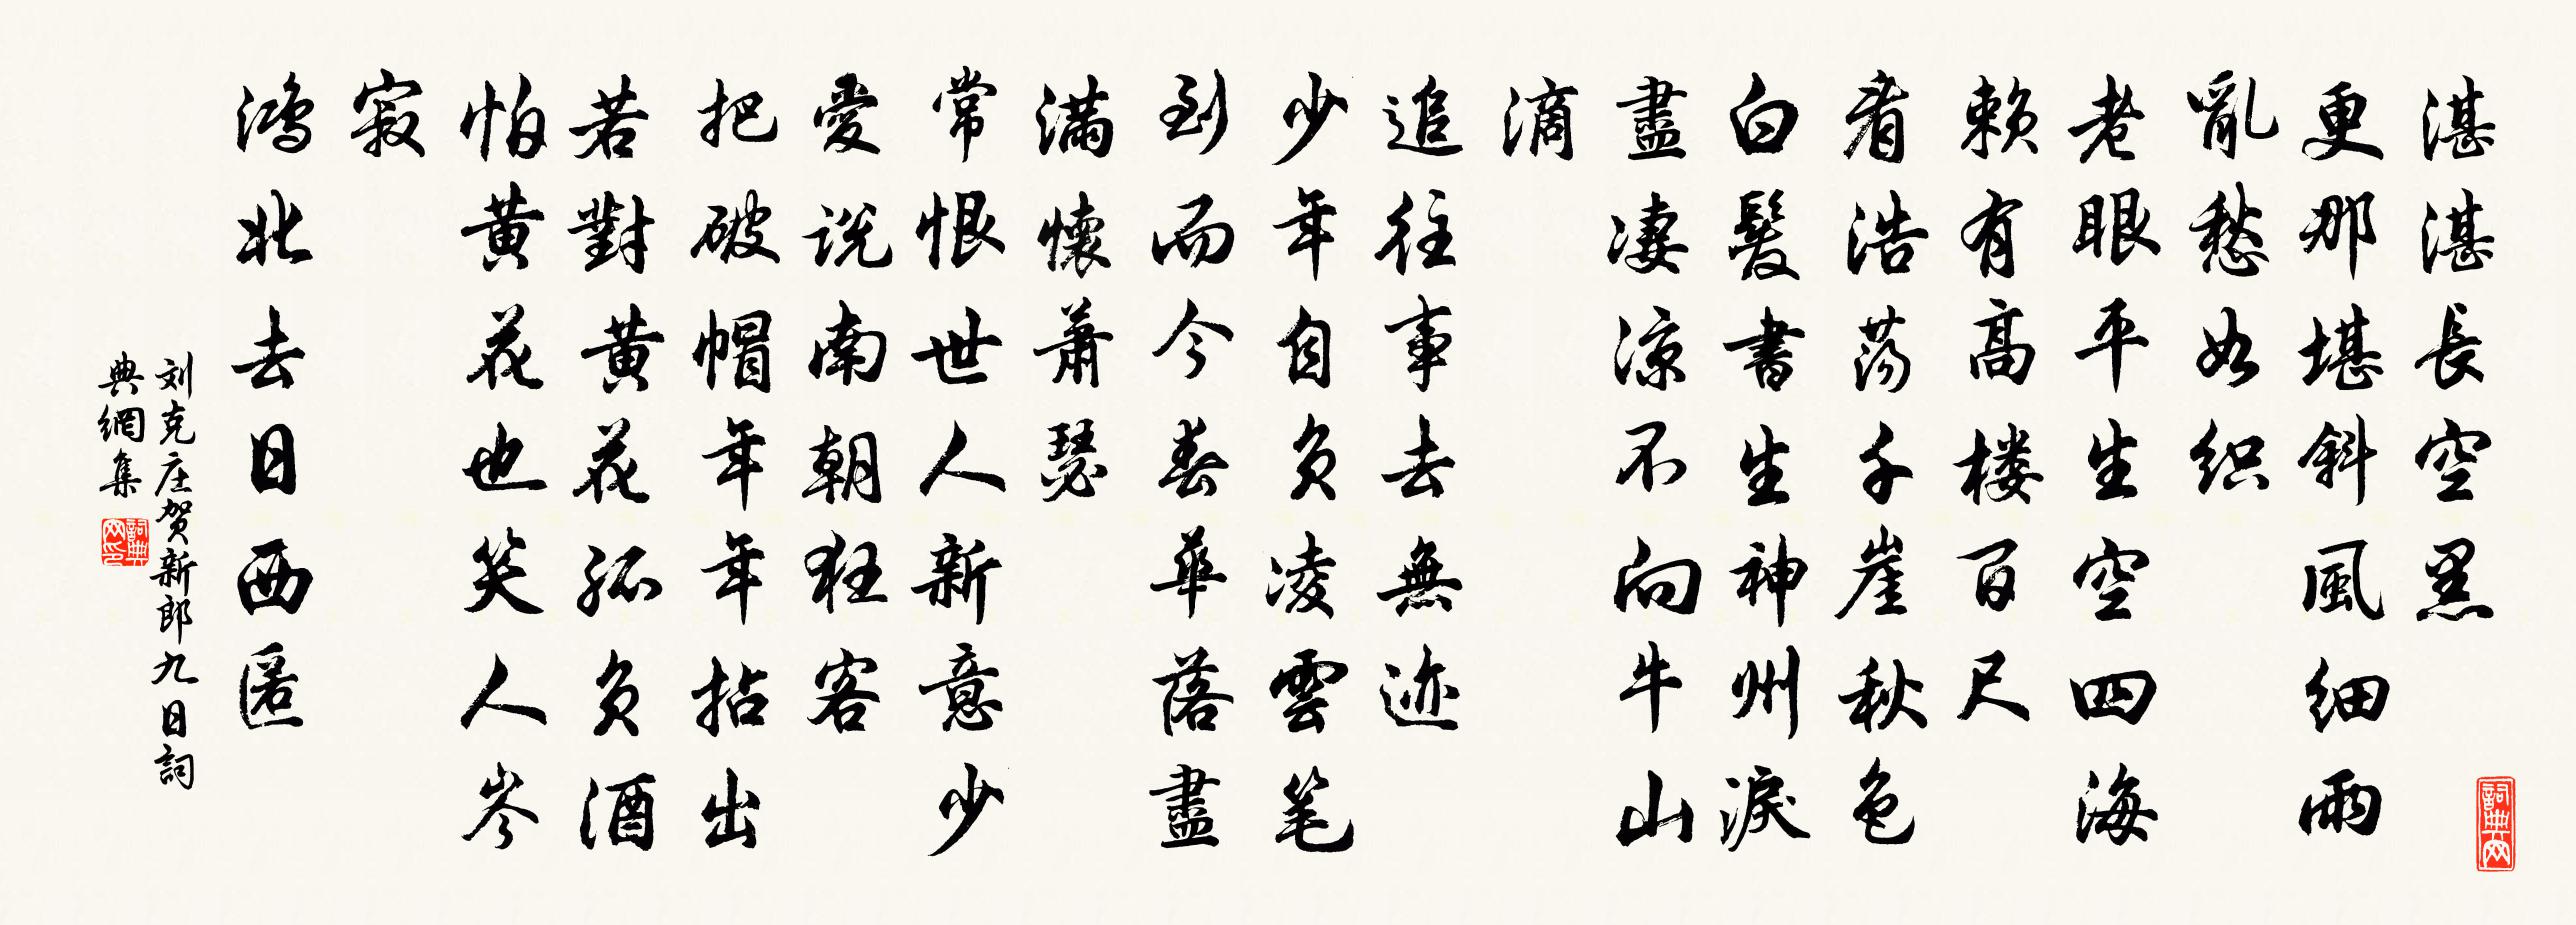 湛湛長空黑
更那堪斜風細雨
亂愁如织
老眼平生空四海
赖有高楼百尺
看浩荡千崖秋色
白髮書生神州淚
盡凄涼不向牛山
滴
追往事去無迹
少年自负凌雲笔
到而今春華落盡
满懷萧瑟
常恨世人新意少
愛说南朝狂客
把破帽年年拈出
若對黄花孤负酒
怕黄花也笑人岑
寂
鴻北去日西匿
刘克庄贺新郎九日詞
典網集
詞典网印
詞典网